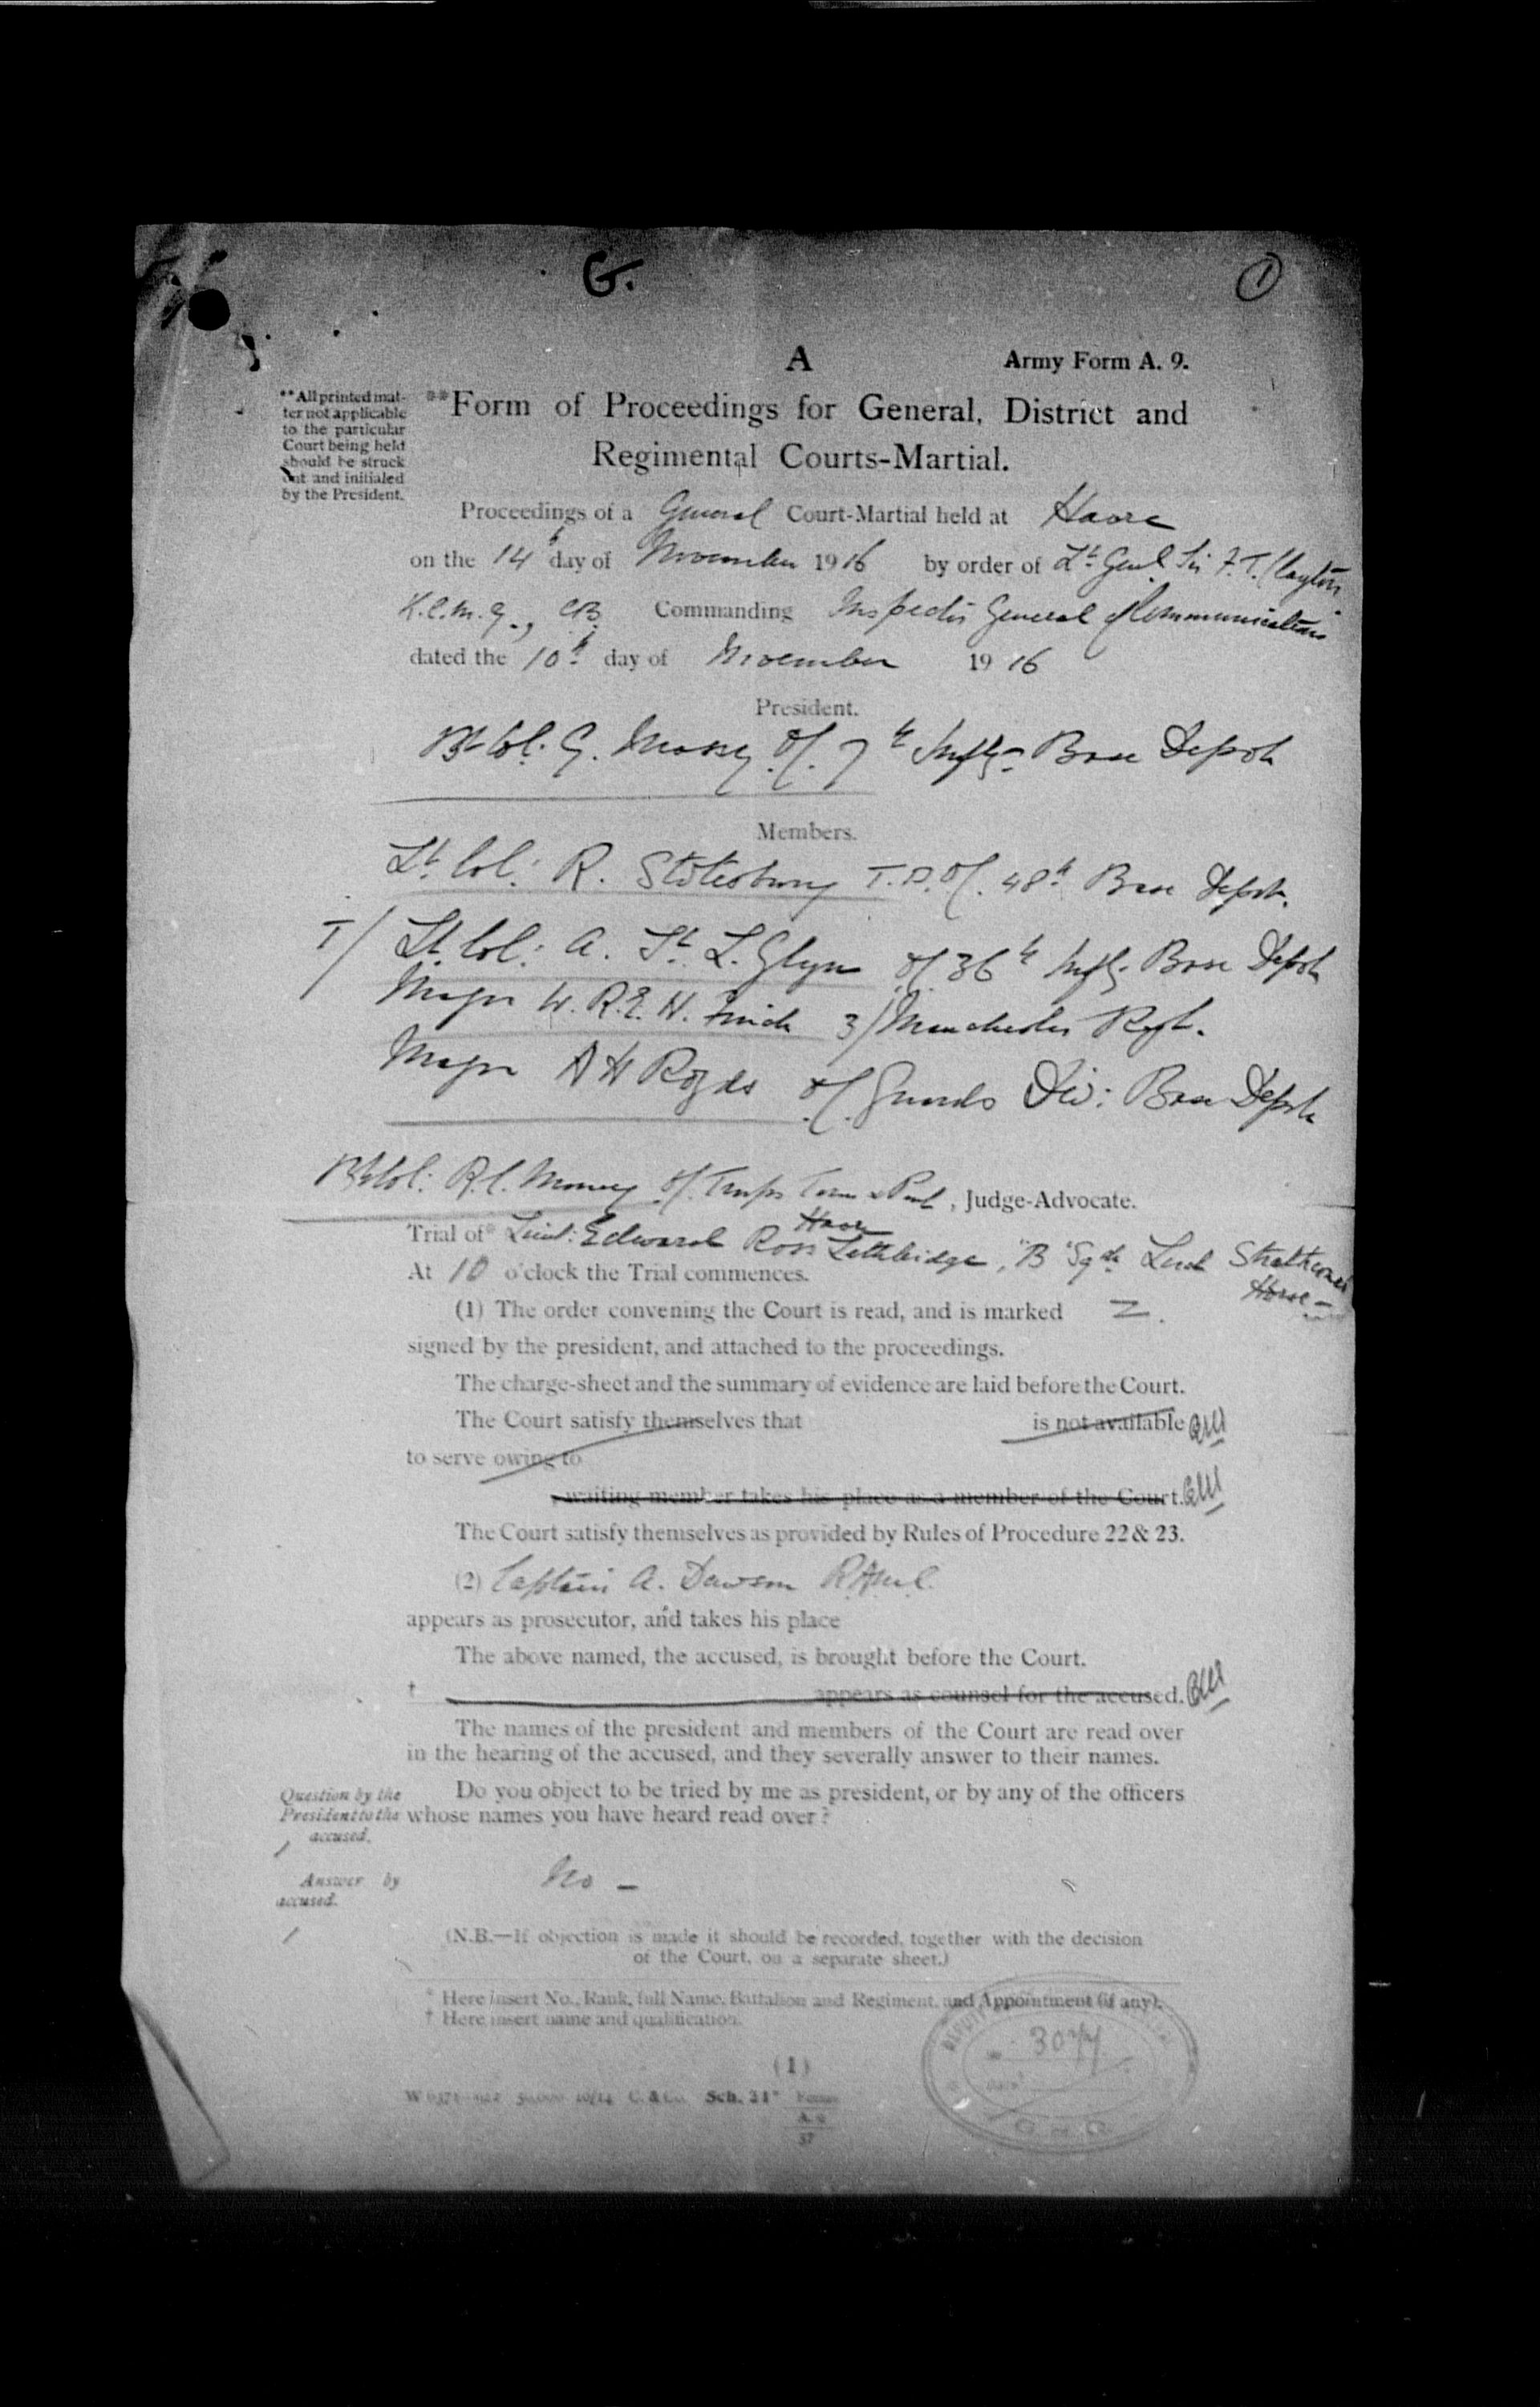 G.
1
A
Army Form A. 9.
**All printed mat-
ter not applicable
to the particular
Court being held
should be struck
out and initialed
by the President.
**Form of Proceedings for General, District and
Regimental Courts-Martial.
Proceedings of a General Court-Martial held at Havre
on the 14th day of November 1916 by order of Lt. Genl. Sir F. T. Clayton
K.C.M.G., CB. Commanding Inspector General of Communications
dated the 10th day of November 1916
President.
Bt Col. G. Massy of. 7th Infy. Base Depot
Members.
Lt. Col: R. Stotesbury T.D. of. 48th Base Depot.
T/ Lt. Col: A. St. L. Glyn of 36th Infy. Base Depot
Major W. R. E. H. Finch 3/Manchester Regt.
Major A H Royds of. Guards Div: Base Depot
Bt Col: R. C. Money of. Troops Term & Port, Judge-Advocate.
Havre
Trial of* Lieut: Edward Ross Lethbridge, "B" Sqdn Lord Strathcona's
Horse -
At 10 o'clock the Trial commences.
(1) The order convening the Court is read, and is marked Z.
signed by the president, and attached to the proceedings.
The charge-sheet and the summary of evidence are laid before the Court.
The Court satisfy themselves that is not available
to serve owing to
waiting member takes his place as a member of the Court.
The Court satisfy themselves as provided by Rules of Procedure 22 & 23.
(2) Captain A. Dawson R.A.M.C.
appears as prosecutor, and takes his place
The above named, the accused, is brought before the Court.
† appears as counsel for the accused.
The names of the president and members of the Court are read over
in the hearing of the accused, and they severally answer to their names.
Question by the
President to the
accused.
Do you object to be tried by me as president, or by any of the officers
whose names you have heard read over?
Answer by
accused.
No -
(N.B.—If objection is made it should be recorded, together with the decision
of the Court, on a separate sheet.)
* Here insert No., Rank, full Name, Battalion and Regiment, and Appointment (if any).
† Here insert name and qualification.
(1)
50,000 10/14 C. & Co. Sch. 21* Forms
A. 9
37
G H Q